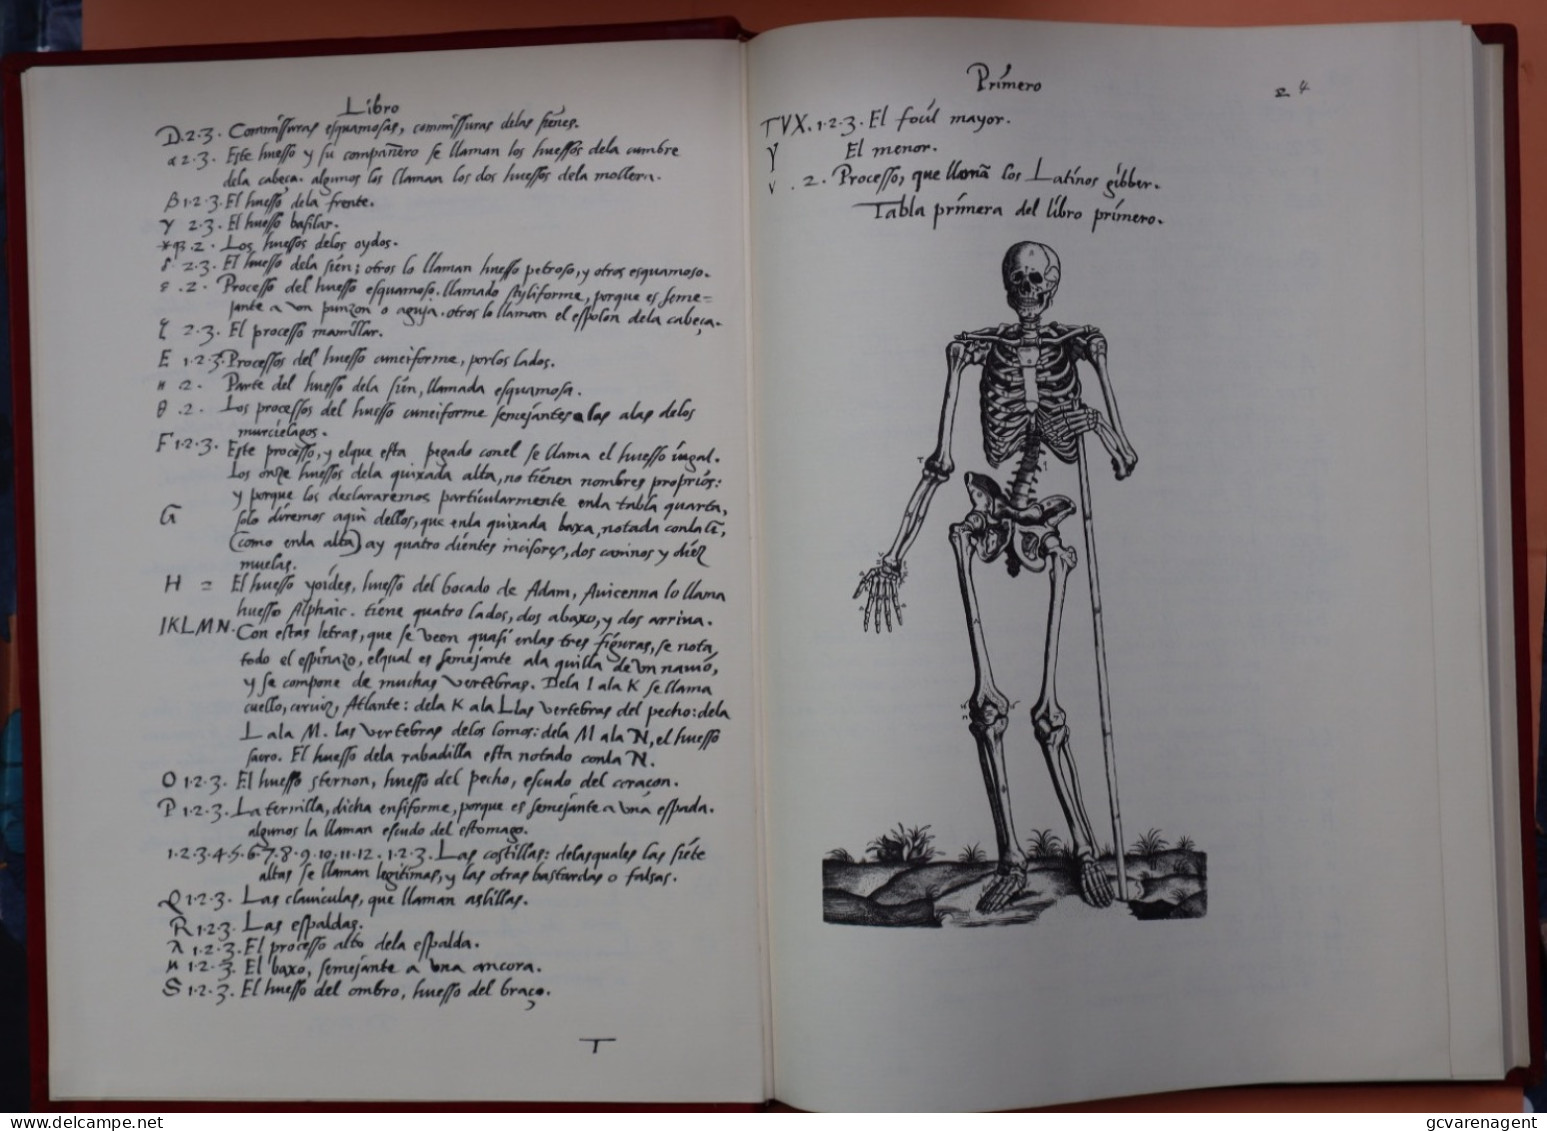 Libro
D.2.3. Commissuras esquamosas, commissuras delas sienes.
α 2.3. Este huesso y su compañero se llaman los huessos dela cumbre
dela cabeça. algunos los llaman los dos huessos dela mollera.
β 1.2.3. El huesso dela frente.
γ 2.3. El huesso basilar.
*β.2. Los huessos delos oydos.
δ 2.3. El huesso dela sién; otros lo llaman huesso petroso, y otros esquamoso.
ε .2. Processo del huesso esquamoso. llamado styliforme, porque es seme=
jante a un punzon o aguja. otros lo llaman el espolón dela cabeça.
ζ 2.3. El processo mamillar.
E 1.2.3. Processos del huesso cuneiforme, porlos lados.
η .2. Parte del huesso dela sién, llamada esquamosa.
θ .2. Los processos del huesso cuneiforme semejantes a las alas delos
murciélagos.
F 1.2.3. Este processo, y elque esta pegado conel se llama el huesso iugal.
Los onze huessos dela quixada alta, no tienen nombres proprios:
y porque los declararemos particularmente enla tabla quarta,
G solo diremos aqui dellos, que enla quixada baxa, notada conla G,
(como enla alta) ay quatro dientes incisores, dos caninos y diez
muelas.
H = El huesso yoides, huesso del bocado de Adam, Auicenna lo llama
huesso Alphaic. tiene quatro lados, dos abaxo, y dos arriua.
IKLMN. Con estas letras, que se veen quasi enlas tres figuras, se nota
todo el espinazo, elqual es semejante ala quilla de un nauió,
y se compone de muchas vertebras. Dela I ala K se llama
cuello, ceruiz, Atlante: dela K ala L las vertebras del pecho: dela
L ala M. las vertebras delos lomos: dela M ala N, el huesso
sacro. El huesso dela rabadilla esta notado conla N.
O 1.2.3. El huesso sternon, huesso del pecho, escudo del coraçon.
P 1.2.3. La ternilla, dicha ensiforme, porque es semejante a una espada.
algunos la llaman escudo del estomago.
1.2.3.4.5.6.7.8.9.10.11.12. 1.2.3. Las costillas: delasquales las siete
altas se llaman legitimas, y las otras bastardas o falsas.
Q 1.2.3. Las clauiculas, que llaman aslillas.
R 1.2.3. Las espaldas.
λ 1.2.3. El processo alto dela espalda.
μ 1.2.3. El baxo, semejante a una ancora.
S 1.2.3. El huesso del ombro, huesso del braço.
T
Primero
24
TVX.1.2.3. El focil mayor.
Y El menor.
ν .2. Processo, que llamã los Latinos gibber.
Tabla primera del libro primero.
gcvarenagent